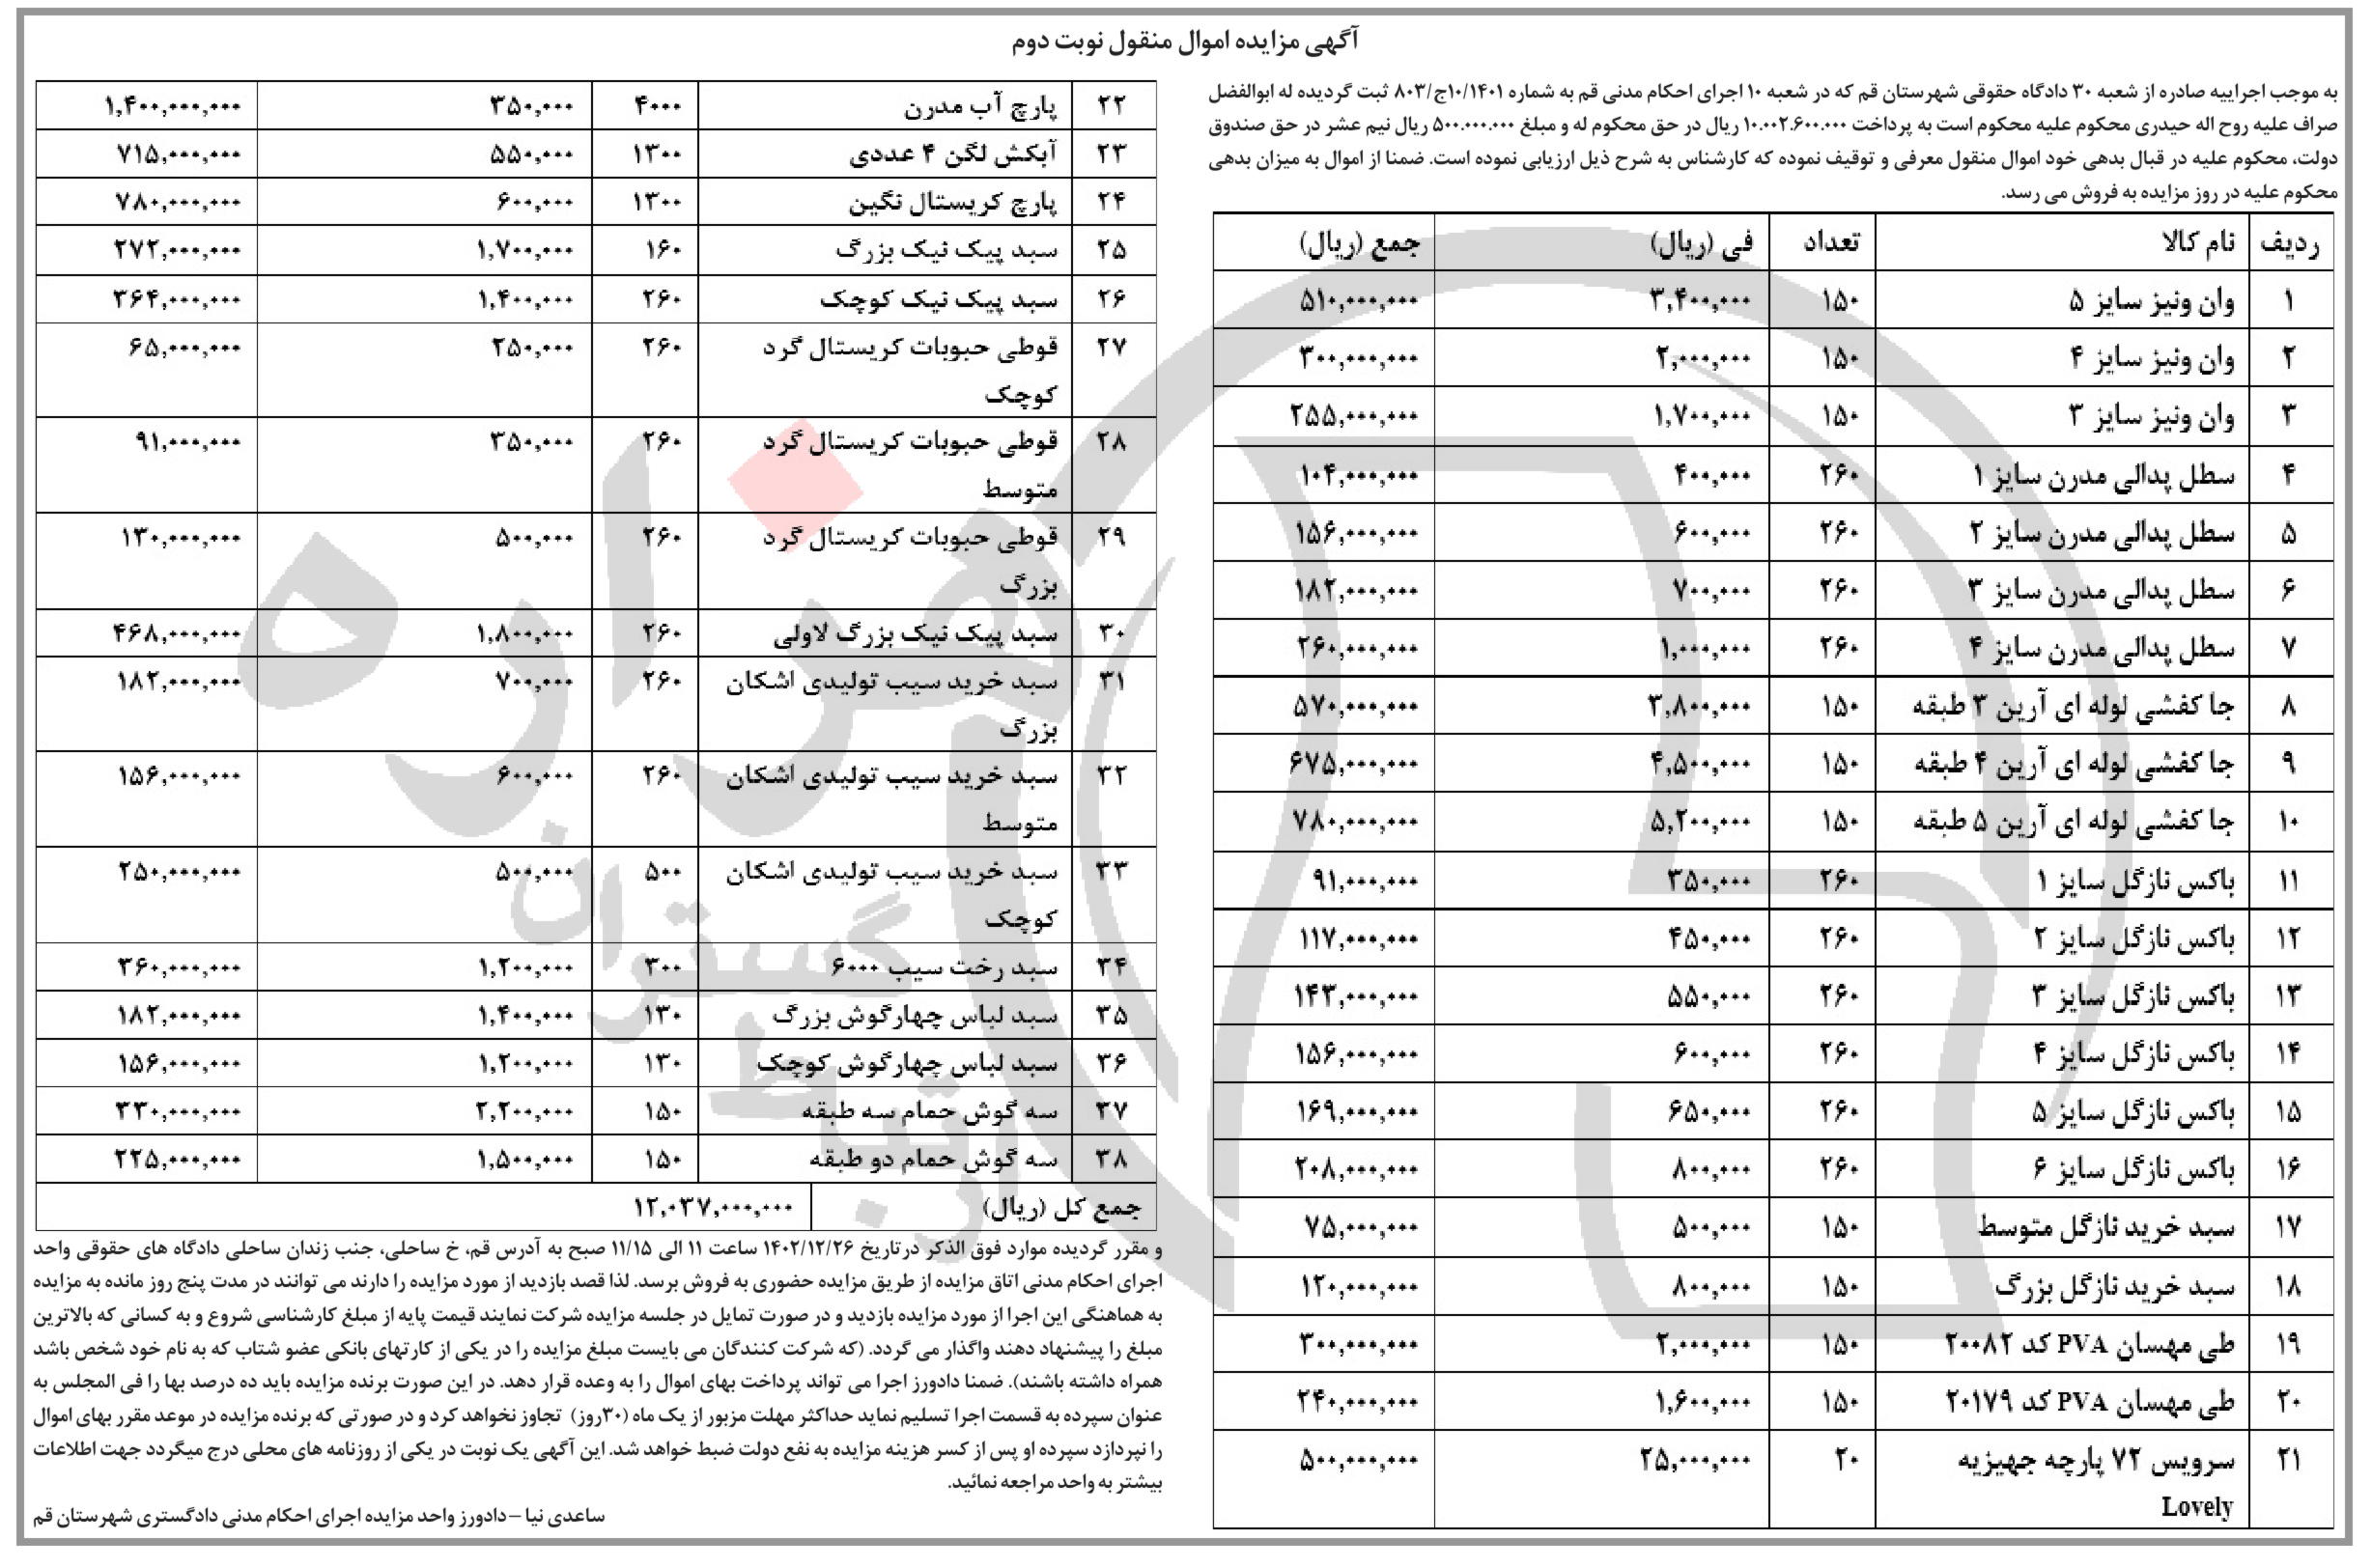 آگهی مزایده اموال منقول نوبت دوم
به موجب اجراییه صادره از شعبه ۳۰ دادگاه حقوقی شهرستان قم که در شعبه ۱۰ اجرای احکام مدنی قم به شماره ۱۰/۱۴۰۱ج/۸۰۳ ثبت گردیده له ابوالفضل
صراف علیه روح اله حیدری محکوم علیه محکوم است به پرداخت ۱۰.۰۰۲.۶۰۰.۰۰۰ ریال در حق محکوم له و مبلغ ۵۰۰.۰۰۰.۰۰۰ ریال نیم عشر در حق صندوق
دولت، محکوم علیه در قبال بدهی خود اموال منقول معرفی و توقیف نموده که کارشناس به شرح ذیل ارزیابی نموده است. ضمنا از اموال به میزان بدهی
محکوم علیه در روز مزایده به فروش می رسد.
ردیف نام کالا تعداد فی (ریال) جمع (ریال)
۱ وان ونیز سایز ۵ ۱۵۰ ۳,۴۰۰,۰۰۰ ۵۱۰,۰۰۰,۰۰۰
۲ وان ونیز سایز ۴ ۱۵۰ ۲,۰۰۰,۰۰۰ ۳۰۰,۰۰۰,۰۰۰
۳ وان ونیز سایز ۳ ۱۵۰ ۱,۷۰۰,۰۰۰ ۲۵۵,۰۰۰,۰۰۰
۴ سطل پدالی مدرن سایز ۱ ۲۶۰ ۴۰۰,۰۰۰ ۱۰۴,۰۰۰,۰۰۰
۵ سطل پدالی مدرن سایز ۲ ۲۶۰ ۶۰۰,۰۰۰ ۱۵۶,۰۰۰,۰۰۰
۶ سطل پدالی مدرن سایز ۳ ۲۶۰ ۷۰۰,۰۰۰ ۱۸۲,۰۰۰,۰۰۰
۷ سطل پدالی مدرن سایز ۴ ۲۶۰ ۱,۰۰۰,۰۰۰ ۲۶۰,۰۰۰,۰۰۰
۸ جا کفشی لوله ای آرین ۳ طبقه ۱۵۰ ۳,۸۰۰,۰۰۰ ۵۷۰,۰۰۰,۰۰۰
۹ جا کفشی لوله ای آرین ۴ طبقه ۱۵۰ ۴,۵۰۰,۰۰۰ ۶۷۵,۰۰۰,۰۰۰
۱۰ جا کفشی لوله ای آرین ۵ طبقه ۱۵۰ ۵,۲۰۰,۰۰۰ ۷۸۰,۰۰۰,۰۰۰
۱۱ باکس نازگل سایز ۱ ۲۶۰ ۳۵۰,۰۰۰ ۹۱,۰۰۰,۰۰۰
۱۲ باکس نازگل سایز ۲ ۲۶۰ ۴۵۰,۰۰۰ ۱۱۷,۰۰۰,۰۰۰
۱۳ باکس نازگل سایز ۳ ۲۶۰ ۵۵۰,۰۰۰ ۱۴۳,۰۰۰,۰۰۰
۱۴ باکس نازگل سایز ۴ ۲۶۰ ۶۰۰,۰۰۰ ۱۵۶,۰۰۰,۰۰۰
۱۵ باکس نازگل سایز ۵ ۲۶۰ ۶۵۰,۰۰۰ ۱۶۹,۰۰۰,۰۰۰
۱۶ باکس نازگل سایز ۶ ۲۶۰ ۸۰۰,۰۰۰ ۲۰۸,۰۰۰,۰۰۰
۱۷ سبد خرید نازگل متوسط ۱۵۰ ۵۰۰,۰۰۰ ۷۵,۰۰۰,۰۰۰
۱۸ سبد خرید نازگل بزرگ ۱۵۰ ۸۰۰,۰۰۰ ۱۲۰,۰۰۰,۰۰۰
۱۹ طی مهسان PVA کد ۲۰۰۸۲ ۱۵۰ ۲,۰۰۰,۰۰۰ ۳۰۰,۰۰۰,۰۰۰
۲۰ طی مهسان PVA کد ۲۰۱۷۹ ۱۵۰ ۱,۶۰۰,۰۰۰ ۲۴۰,۰۰۰,۰۰۰
۲۱ سرویس ۷۲ پارچه جهیزیه ۲۰ ۲۵,۰۰۰,۰۰۰ ۵۰۰,۰۰۰,۰۰۰
Lovely
۲۲ پارچ آب مدرن ۴۰۰۰ ۳۵۰,۰۰۰ ۱,۴۰۰,۰۰۰,۰۰۰
۲۳ آبکش لگن ۴ عددی ۱۳۰۰ ۵۵۰,۰۰۰ ۷۱۵,۰۰۰,۰۰۰
۲۴ پارچ کریستال نگین ۱۳۰۰ ۶۰۰,۰۰۰ ۷۸۰,۰۰۰,۰۰۰
۲۵ سبد پیک نیک بزرگ ۱۶۰ ۱,۷۰۰,۰۰۰ ۲۷۲,۰۰۰,۰۰۰
۲۶ سبد پیک نیک کوچک ۲۶۰ ۱,۴۰۰,۰۰۰ ۳۶۴,۰۰۰,۰۰۰
۲۷ قوطی حبوبات کریستال گرد ۲۶۰ ۲۵۰,۰۰۰ ۶۵,۰۰۰,۰۰۰
کوچک
۲۸ قوطی حبوبات کریستال گرد ۲۶۰ ۳۵۰,۰۰۰ ۹۱,۰۰۰,۰۰۰
متوسط
۲۹ قوطی حبوبات کریستال گرد ۲۶۰ ۵۰۰,۰۰۰ ۱۳۰,۰۰۰,۰۰۰
بزرگ
۳۰ سبد پیک نیک بزرگ لاولی ۲۶۰ ۱,۸۰۰,۰۰۰ ۴۶۸,۰۰۰,۰۰۰
۳۱ سبد خرید سیب تولیدی اشکان ۲۶۰ ۷۰۰,۰۰۰ ۱۸۲,۰۰۰,۰۰۰
بزرگ
۳۲ سبد خرید سیب تولیدی اشکان ۲۶۰ ۶۰۰,۰۰۰ ۱۵۶,۰۰۰,۰۰۰
متوسط
۳۳ سبد خرید سیب تولیدی اشکان ۵۰۰ ۵۰۰,۰۰۰ ۲۵۰,۰۰۰,۰۰۰
کوچک
۳۴ سبد رخت سیب ۶۰۰۰ ۳۰۰ ۱,۲۰۰,۰۰۰ ۳۶۰,۰۰۰,۰۰۰
۳۵ سبد لباس چهارگوش بزرگ ۱۳۰ ۱,۴۰۰,۰۰۰ ۱۸۲,۰۰۰,۰۰۰
۳۶ سبد لباس چهارگوش کوچک ۱۳۰ ۱,۲۰۰,۰۰۰ ۱۵۶,۰۰۰,۰۰۰
۳۷ سه گوش حمام سه طبقه ۱۵۰ ۲,۲۰۰,۰۰۰ ۳۳۰,۰۰۰,۰۰۰
۳۸ سه گوش حمام دو طبقه ۱۵۰ ۱,۵۰۰,۰۰۰ ۲۲۵,۰۰۰,۰۰۰
جمع کل (ریال) ۱۲,۰۳۷,۰۰۰,۰۰۰
و مقرر گردیده موارد فوق الذکر درتاریخ ۱۴۰۲/۱۲/۲۶ ساعت ۱۱ الی ۱۱/۱۵ صبح به آدرس قم، خ ساحلی، جنب زندان ساحلی دادگاه های حقوقی واحد
اجرای احکام مدنی اتاق مزایده از طریق مزایده حضوری به فروش برسد. لذا قصد بازدید از مورد مزایده را دارند می توانند در مدت پنج روز مانده به مزایده
به هماهنگی این اجرا از مورد مزایده بازدید و در صورت تمایل در جلسه مزایده شرکت نمایند قیمت پایه از مبلغ کارشناسی شروع و به کسانی که بالاترین
مبلغ را پیشنهاد دهند واگذار می گردد. (که شرکت کنندگان می بایست مبلغ مزایده را در یکی از کارتهای بانکی عضو شتاب که به نام خود شخص باشد
همراه داشته باشند). ضمنا دادورز اجرا می تواند پرداخت بهای اموال را به وعده قرار دهد. در این صورت برنده مزایده باید ده درصد بها را فی المجلس به
عنوان سپرده به قسمت اجرا تسلیم نماید حداکثر مهلت مزبور از یک ماه (۳۰روز) تجاوز نخواهد کرد و در صورتی که برنده مزایده در موعد مقرر بهای اموال
را نپردازد سپرده او پس از کسر هزینه مزایده به نفع دولت ضبط خواهد شد. این آگهی یک نوبت در یکی از روزنامه های محلی درج میگردد جهت اطلاعات
بیشتر به واحد مراجعه نمائید.
ساعدی نیا – دادورز واحد مزایده اجرای احکام مدنی دادگستری شهرستان قم
هزاره
گستران
ارتباط